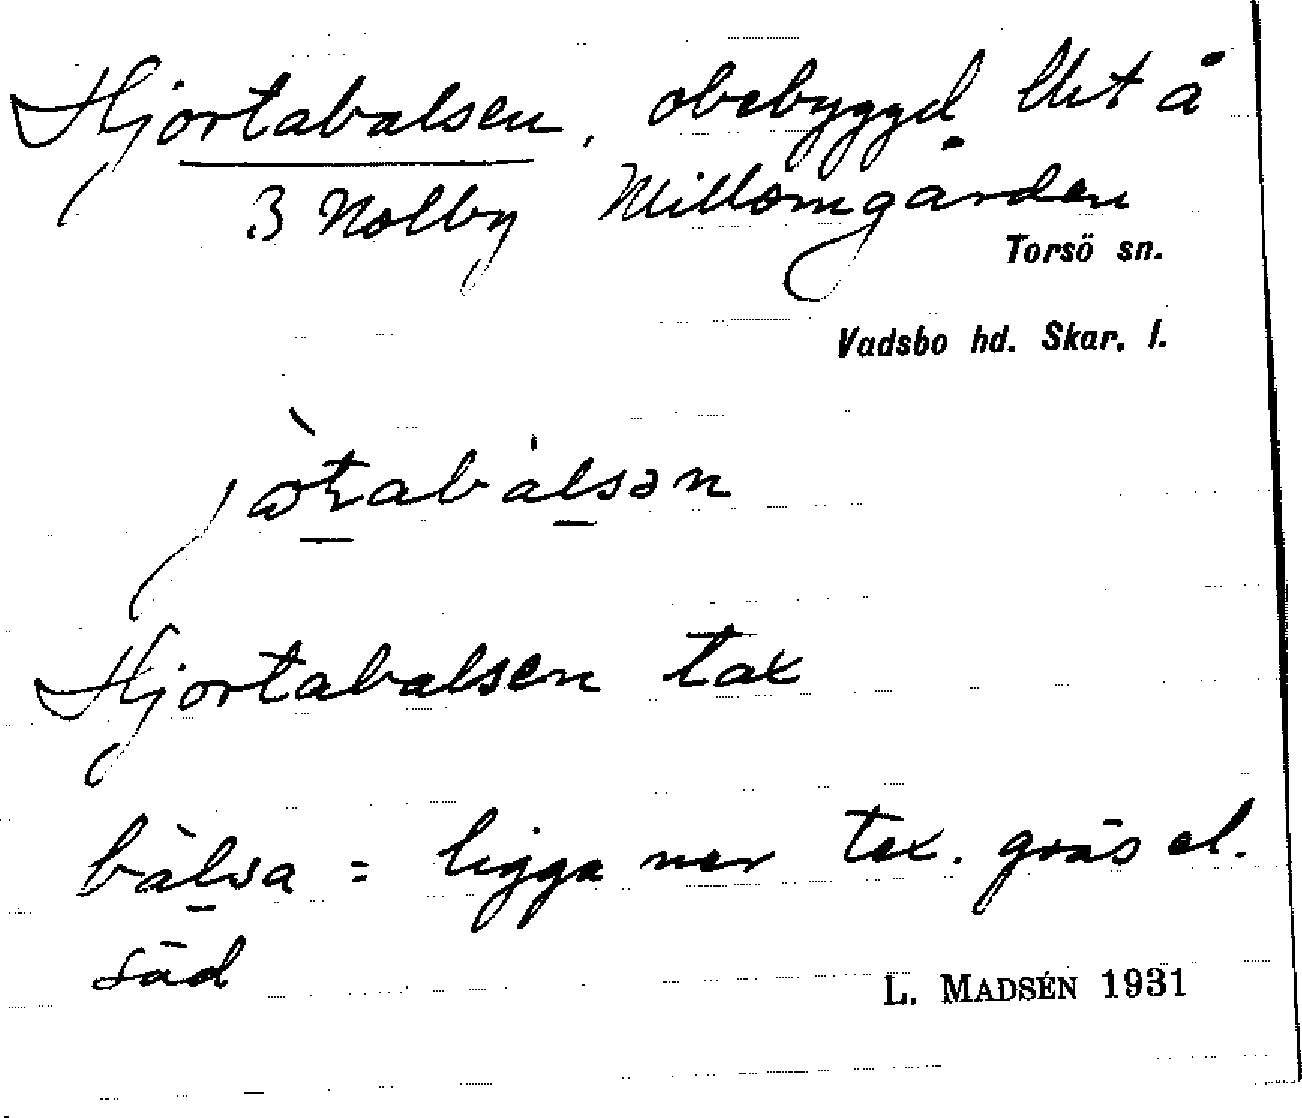 Hjortabalsen, obebyggd lht å
3 Nolby Millomgården
Torsö sn.
Vadsbo hd. Skar. l.
Hjortabalsen tax
bàlsa = ligga ner tex. gräs el.
säd
L. MADSÉN 1931